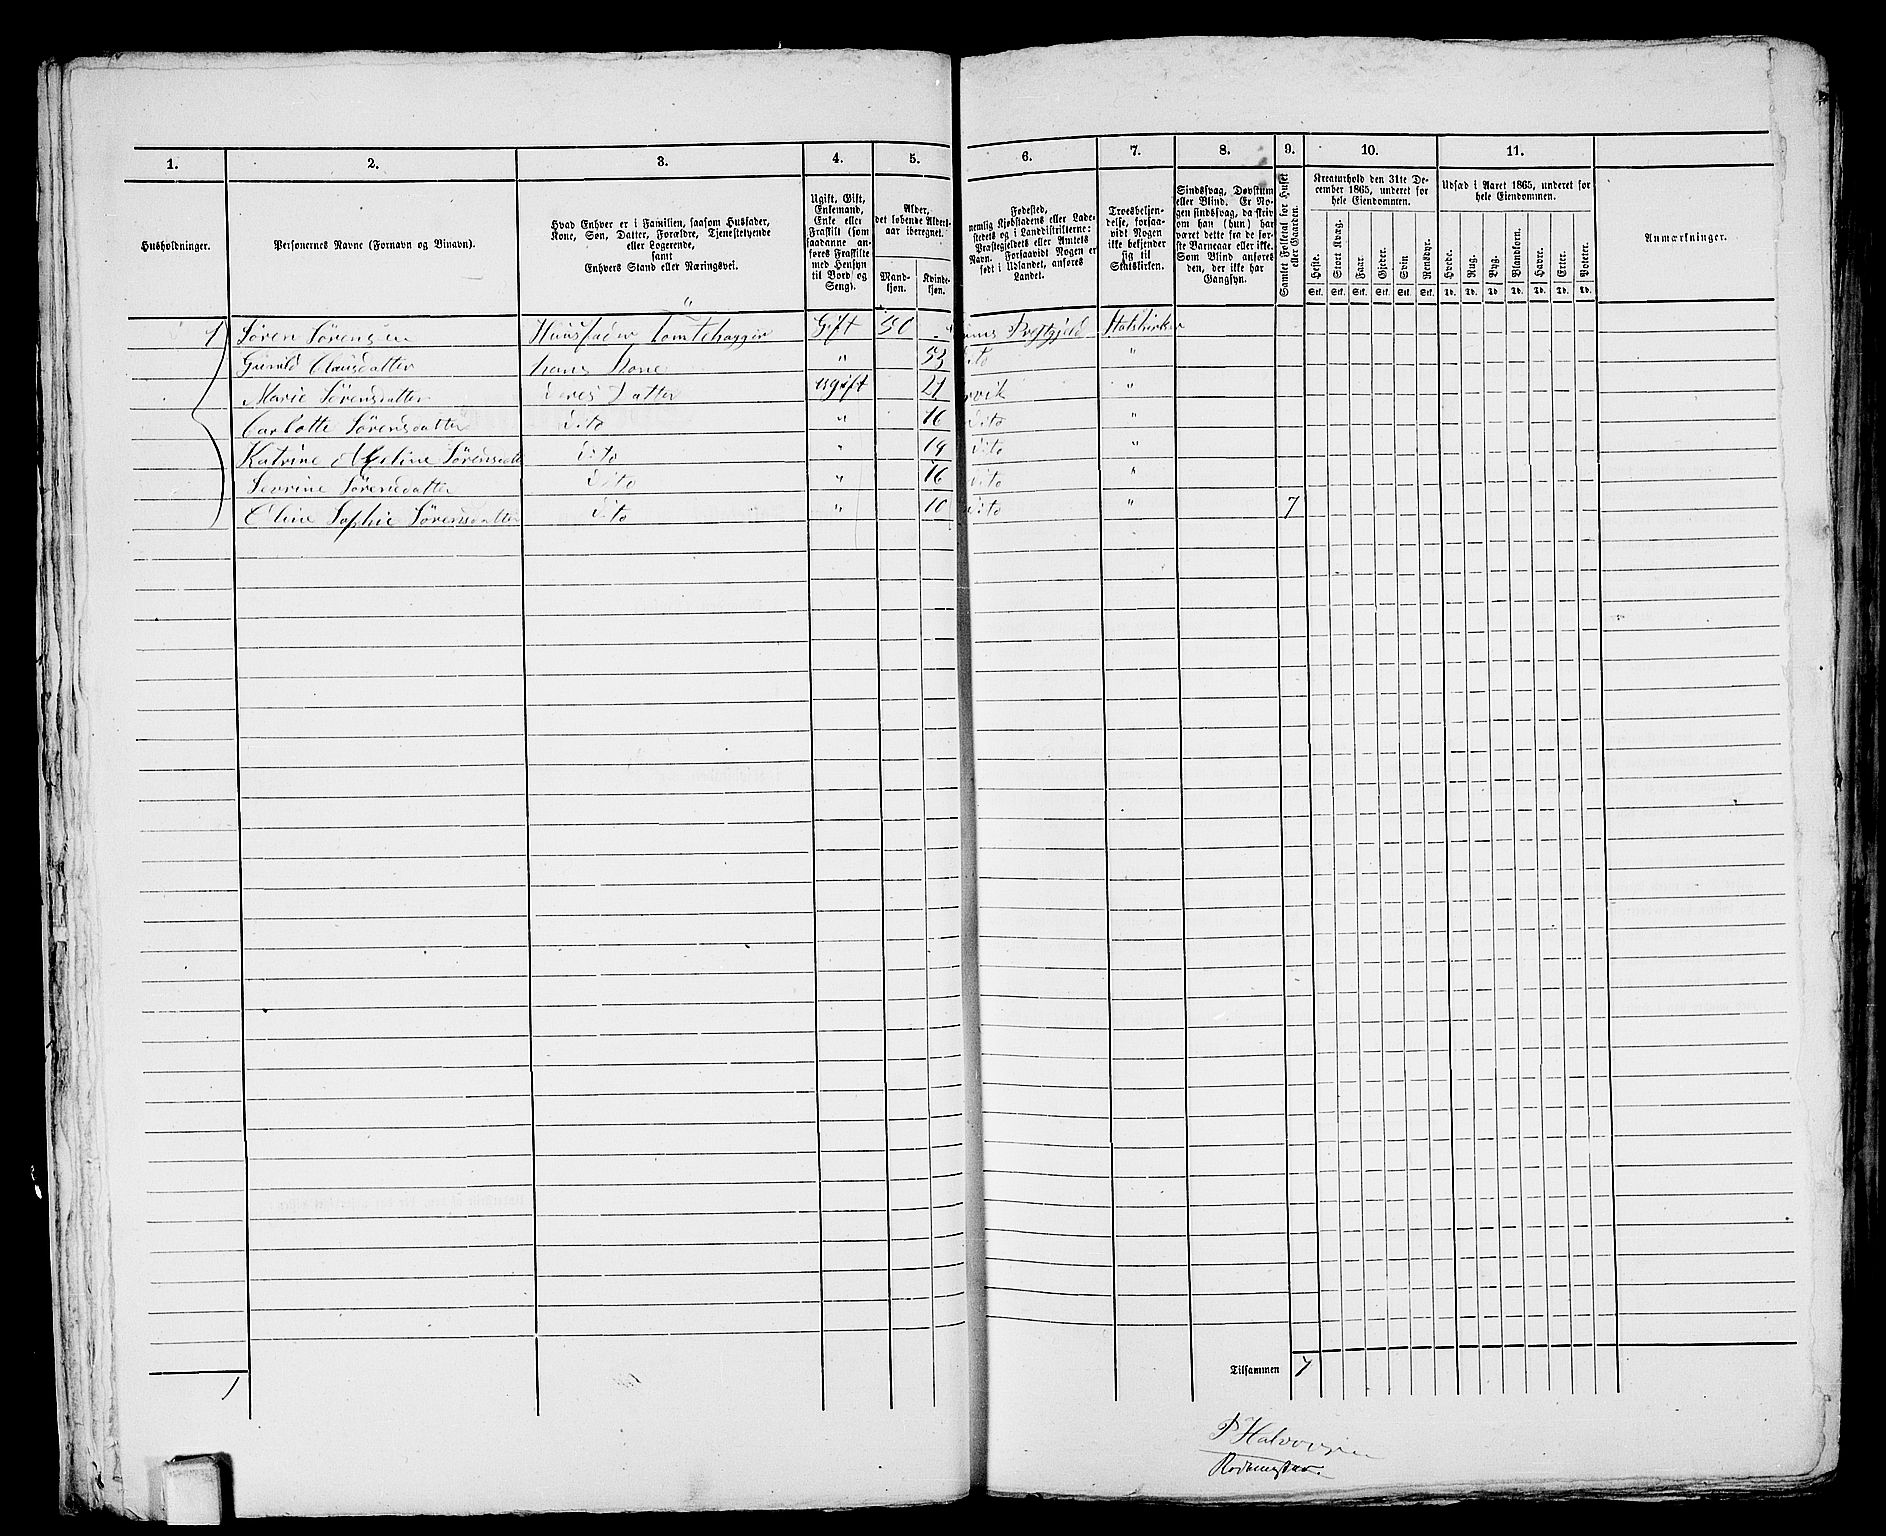 1. 2. 3. 4. 5. 6. 7. 8. 9. 10. 11.
Husholdninger.
Personernes Navne (Fornavn og Binavn).
Hvad Enhver er i Familien, saasom Husfader,
Kone, Søn, Datter, Forældre, Tjenestetyende
eller Logerende,
samt
Enhvers Stand eller Næringsvei.
Ugift, Gift,
Enkemand,
Enke eller
Fraskilt (som
saadanne an-
føres Fraskilte
med Hensyn
til Bord og
Seng).
Alder,
det løbende Alders-
aar iberegnet.
Mand-
kjøn.
Kvinde-
kjøn.
Fødested,
nemlig Kjøbstadens eller Lade-
stedets og i Landdistrikterne:
Præstegjeldets eller Amtets
Navn. Forsaavidt Nogen er
født i Udlandet, anføres
Landet.
Troesbekjen-
delse, forsaa-
vidt Nogen
ikke bekjender
sig til
Statskirken.
Sindssvag, Døvstum
eller Blind. Er No-
gen sindssvag, da skriv
om han (hun) har
været dette fra de før-
ste Barneaar eller ikke.
Som Blind anføres
den, der ikke har
Gangsyn.
Samlet Folketal for Huset
eller Gaarden.
Kreaturhold den 31te De-
cember 1865, underet for
hele Eiendommen.
Heste. Stort Kvæg. Faar. Gjeder. Svin Rensdyr.
Stk. Stk. Stk. Stk. Stk. Stk.
Udsæd i Aaret 1865, underet for
hele Eiendommen.
Hvede. Rug. Byg. Blandkorn. Havre. Erter. Poteter.
Td. Td. Td. Td. Td. Td. Td.
Anmærkninger.
1 Søren Sørensen Huusfader Tomtebygger Gift 50 Præstgjeld Statskirken
Gunild Clausdatter hans Kone " 53 Dito "
Marie Sørensdatter Deres Datter Ugift 21 "
Carlotte Sørensdatter Dito " 16 Dito "
Katrine Sørensdatt Dito " 19 Dito "
Sevrine Sørensdatter Dito " 16 Dito "
Oline Sophie Sørensdatter Dito " 10 Dito " 7
Tilsammen 7
1
P Halvorsen
Rodemester.